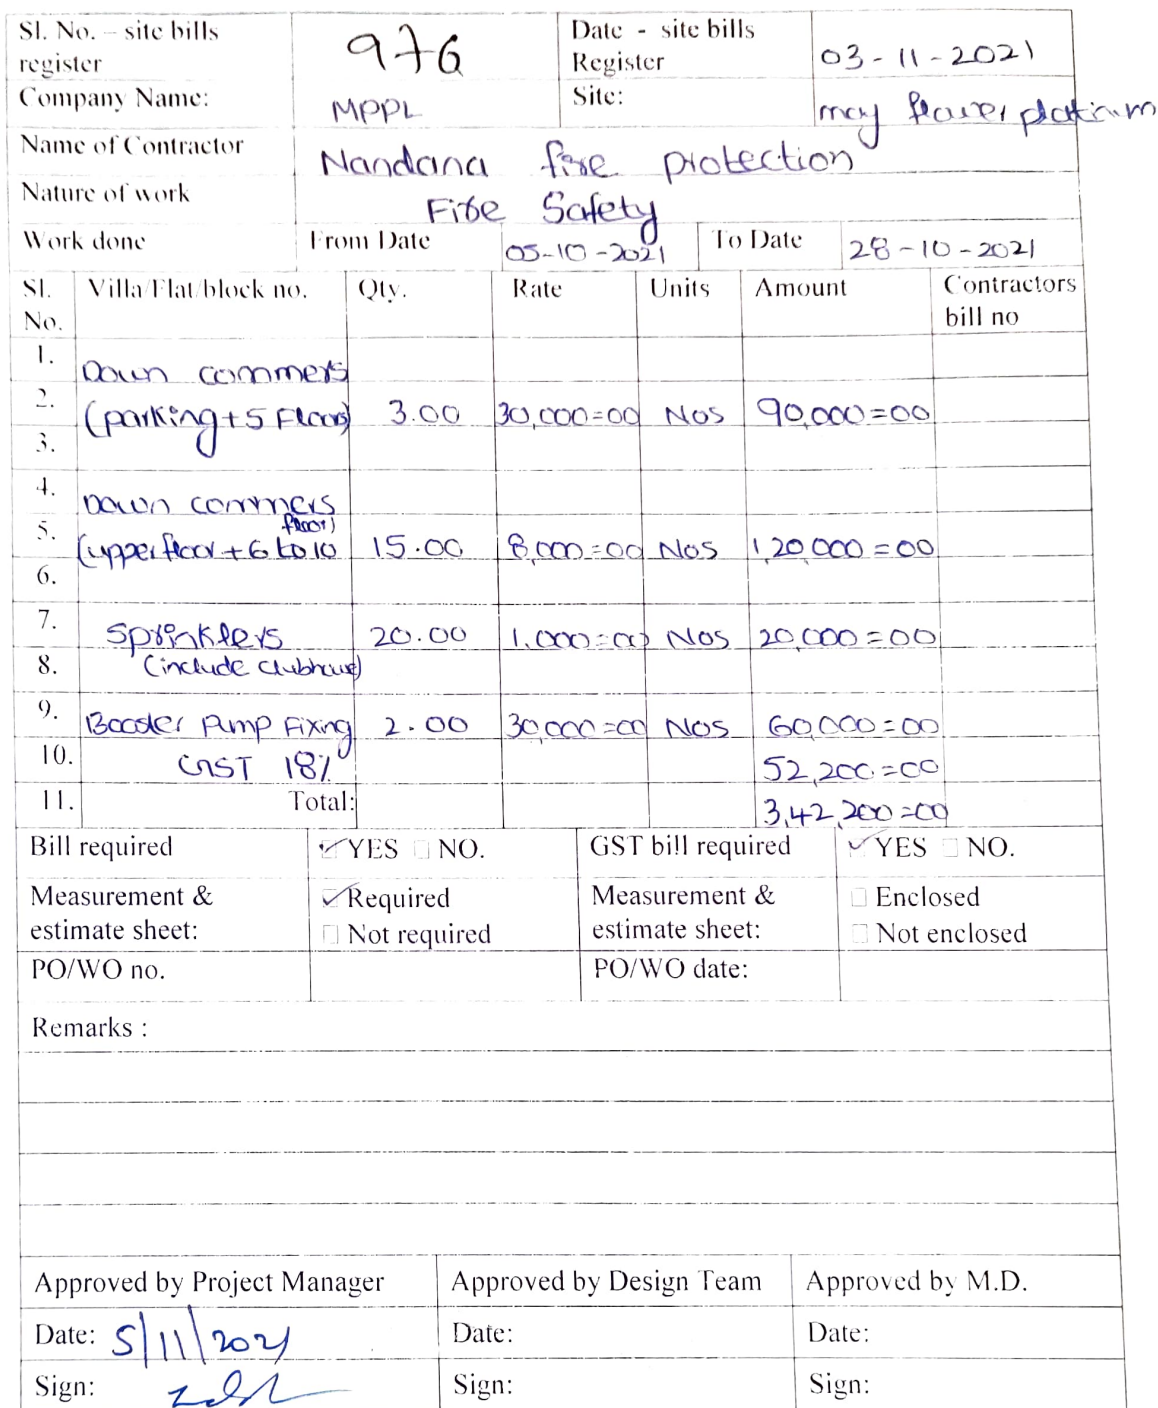 Sl. No. – site bills register 976 Date - site bills Register 03-11-2021
Company Name: MPPL Site: may flower platinum
Name of Contractor Nandana fire protection
Nature of work Fire Safety
Work done From Date 05-10-2021 To Date 28-10-2021
Sl. No. Villa/Flat/block no. Qty. Rate Units Amount Contractors bill no
1. Down commers
2. (parking+5 Floors) 3.00 30,000=00 Nos 90,000=00
3.
4. Down commers
5. (upper floor + 6 to 10 floor) 15.00 8,000=00 Nos 1,20,000=00
6.
7. Sprinklers 20.00 1,000=00 Nos 20,000=00
8. (include clubhouse)
9. Booster Pump Fixing 2.00 30,000=00 Nos 60,000=00
10. GST 18% 52,200=00
11. Total: 3,42,200=00
Bill required YES NO. GST bill required YES NO.
Measurement & estimate sheet: Required Not required Measurement & estimate sheet: Enclosed Not enclosed
PO/WO no. PO/WO date:
Remarks :
Approved by Project Manager Approved by Design Team Approved by M.D.
Date: 5/11/2021 Date: Date:
Sign: Sign: Sign: